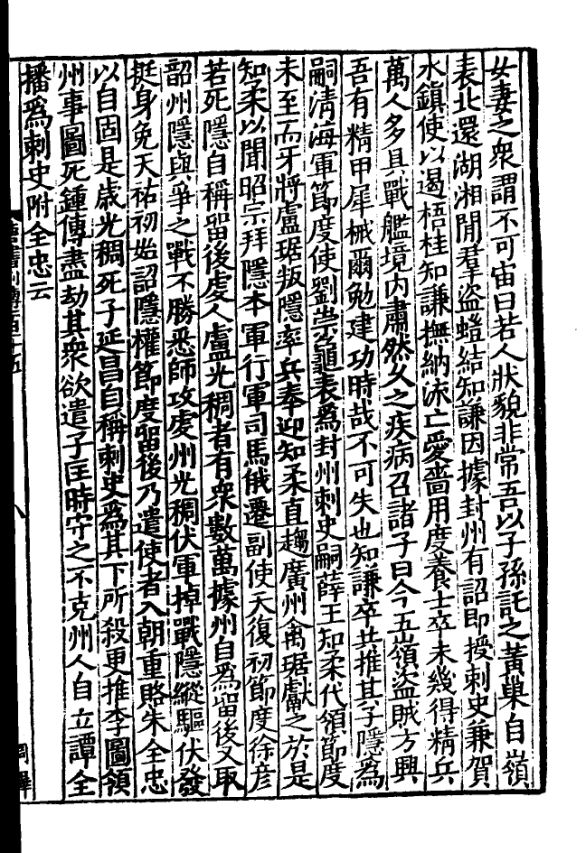 女妻之衆謂不可宙曰若人狀貌非常吾以子孫託之黃巢自嶺
表北還湖湘閒羣盜螘結知謙因據封州有詔即授刺史兼賀
水鎮使以遏梧桂知謙撫納流亡愛嗇用度養士卒未幾得精兵
萬人多具戰艦境内肅然久之疾病召諸子曰今五嶺盜賊方興
吾有精甲犀械爾勉建功時哉不可失也知謙卒共推其子隱爲
嗣清海軍節度使劉崇龜表爲封州刺史嗣薛王知柔代領節度
未至而牙將盧琚叛隱率兵奉迎知柔直趨廣州禽琚獻之於是
知柔以聞昭宗拜隱本軍行軍司馬俄遷副使天復初節度徐彦
若死隱自稱留後虔人盧光稠者有衆數萬據州自爲留後又取
韶州隱與爭之戰不勝悉師攻虔州光稠伏軍掉戰隱縱驅伏發
挺身免天祐初始詔隱權節度留後乃遣使者入朝重賂朱全忠
以自固是歲光稠死子延昌自稱刺史爲其下所殺更推李圖領
州事圖死鍾傳盡劫其衆欲遣子匡時守之不克州人自立譚全
播爲刺史附全忠云